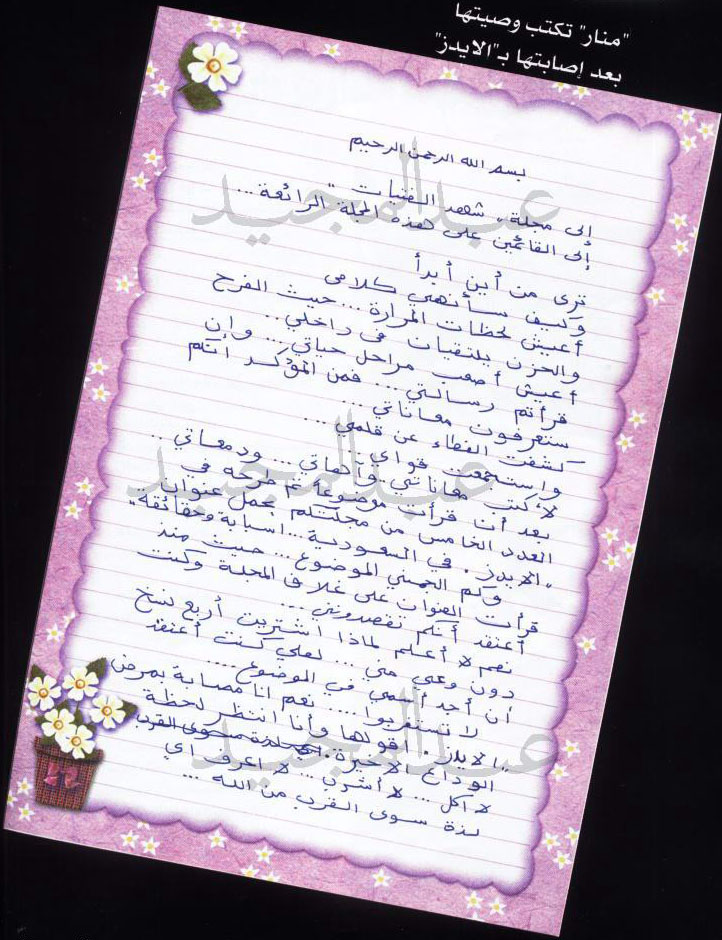 "منار" تكتب وصيتها
بعد إصابتها بـ"الايدز"
بسم الله الرحمن الرحيم
إلى مجلة، شهد الفتيات "
إلى القائمين على هذه المجلة الرائعة ...
ترى من أين أبدأ
وكيف سأنهي كلامي
أعيش لحظات المرارة ... حيث الفرح
والحزن يلتقيان في داخلي ..
أعيش أصعب مراحل حياتي ... وإن
قرأتم رسالتي ... فمن المؤكد أنكم
ستعرفون معاناتي ...
كشفت الغطاء عن قلمي ...
واستجمعت قواي ...
لأكتب معاناتي وآهاتي ... ودمعاتي ..
بعد أن قرأت موضوعاً تم طرحه في
العدد الخامس من مجلتكم يحمل عنوان
"الايدز . في السعودية ... اسبابه وحقائقه"
وكم الموضوع ... حيث منذ
قرأت العنوان على غلاف المجلة وكنت
أعتقد أنكم تقصدونني ...
نعم لا أعلم لماذا اشتريت أربع نسخ
دون وعي مني ... لعلي كنت أعتقد
أن أحد في الموضوع ....
لا تستغربوا ... نعم انا مصابة بمرض
"الايدز . أقولها وأنا انتظر لحظة
الوداع الاخيرة . لذة سوى القرب
لا اكل ... لا أشرب ... لا اعرف اي
لذة سوى القرب من الله ...
عبدالمجيد
عبدالمجيد
عبدالمجيد